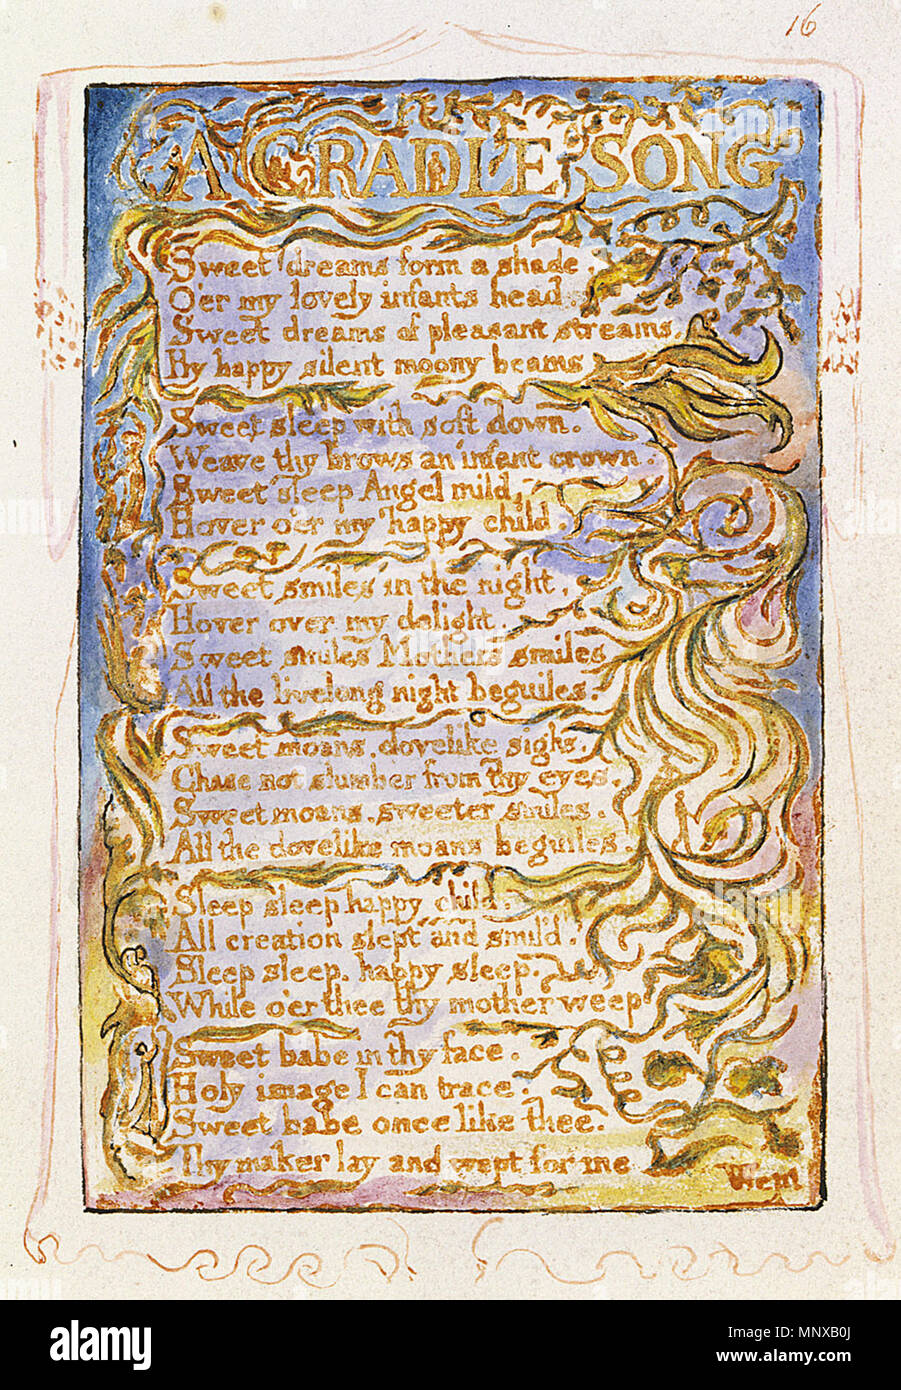 16
A CRADLE SONG
Sweet dreams form a shade,
O'er my lovely infants head.
Sweet dreams of pleasant streams,
By happy silent moony beams
Sweet sleep with soft down.
Weave thy brows an infant crown.
Sweet sleep Angel mild,
Hover o'er my happy child.
Sweet smiles in the night,
Hover over my delight.
Sweet smiles Mothers smiles
All the livelong night beguiles.
Sweet moans, dovelike sighs,
Chase not slumber from thy eyes.
Sweet moans, sweeter smiles.
All the dovelike moans beguiles.
Sleep sleep happy child.
All creation slept and smil'd.
Sleep sleep, happy sleep,
While o'er thee thy mother weep
Sweet babe in thy face,
Holy image I can trace.
Sweet babe once like thee,
Thy maker lay and wept for me
Wept
alamy
Image ID: MNXB0J
www.alamy.com